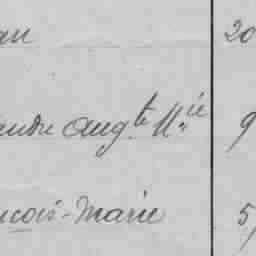 an 20
andre Aug.te M.ie 9
ncois-Marie 5